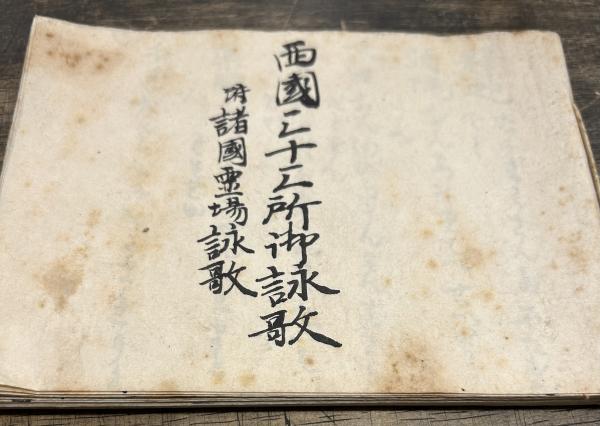 西國三十三所御詠歌
附諸國靈場詠歌